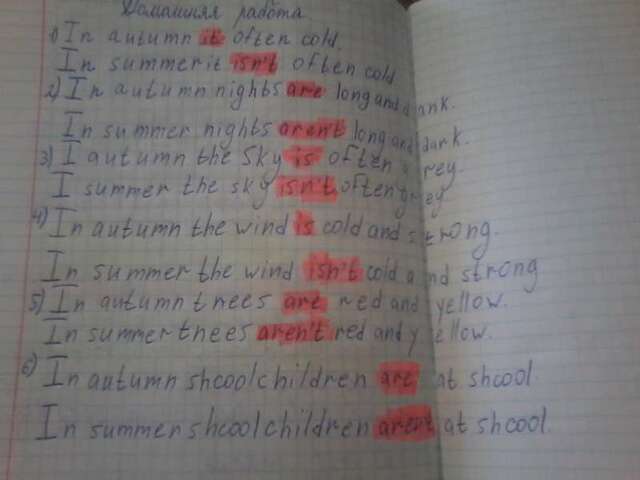 Домашняя работа
1) In autumn it often cold.
In summer it isn't often cold
2) In autumn nights are long and dank.
In summer nights aren't long and dark.
3) I autumn the sky is often grey.
I summer the sky isn't often grey
4) In autumn the wind is cold and strong.
In summer the wind isn't cold and strong
5) In autumn tnees are red and yellow.
In summer tnees aren't red and yellow.
6) In autumn shcoolchildren are at shcool.
In summer shcoolchildren aren't at shcool.